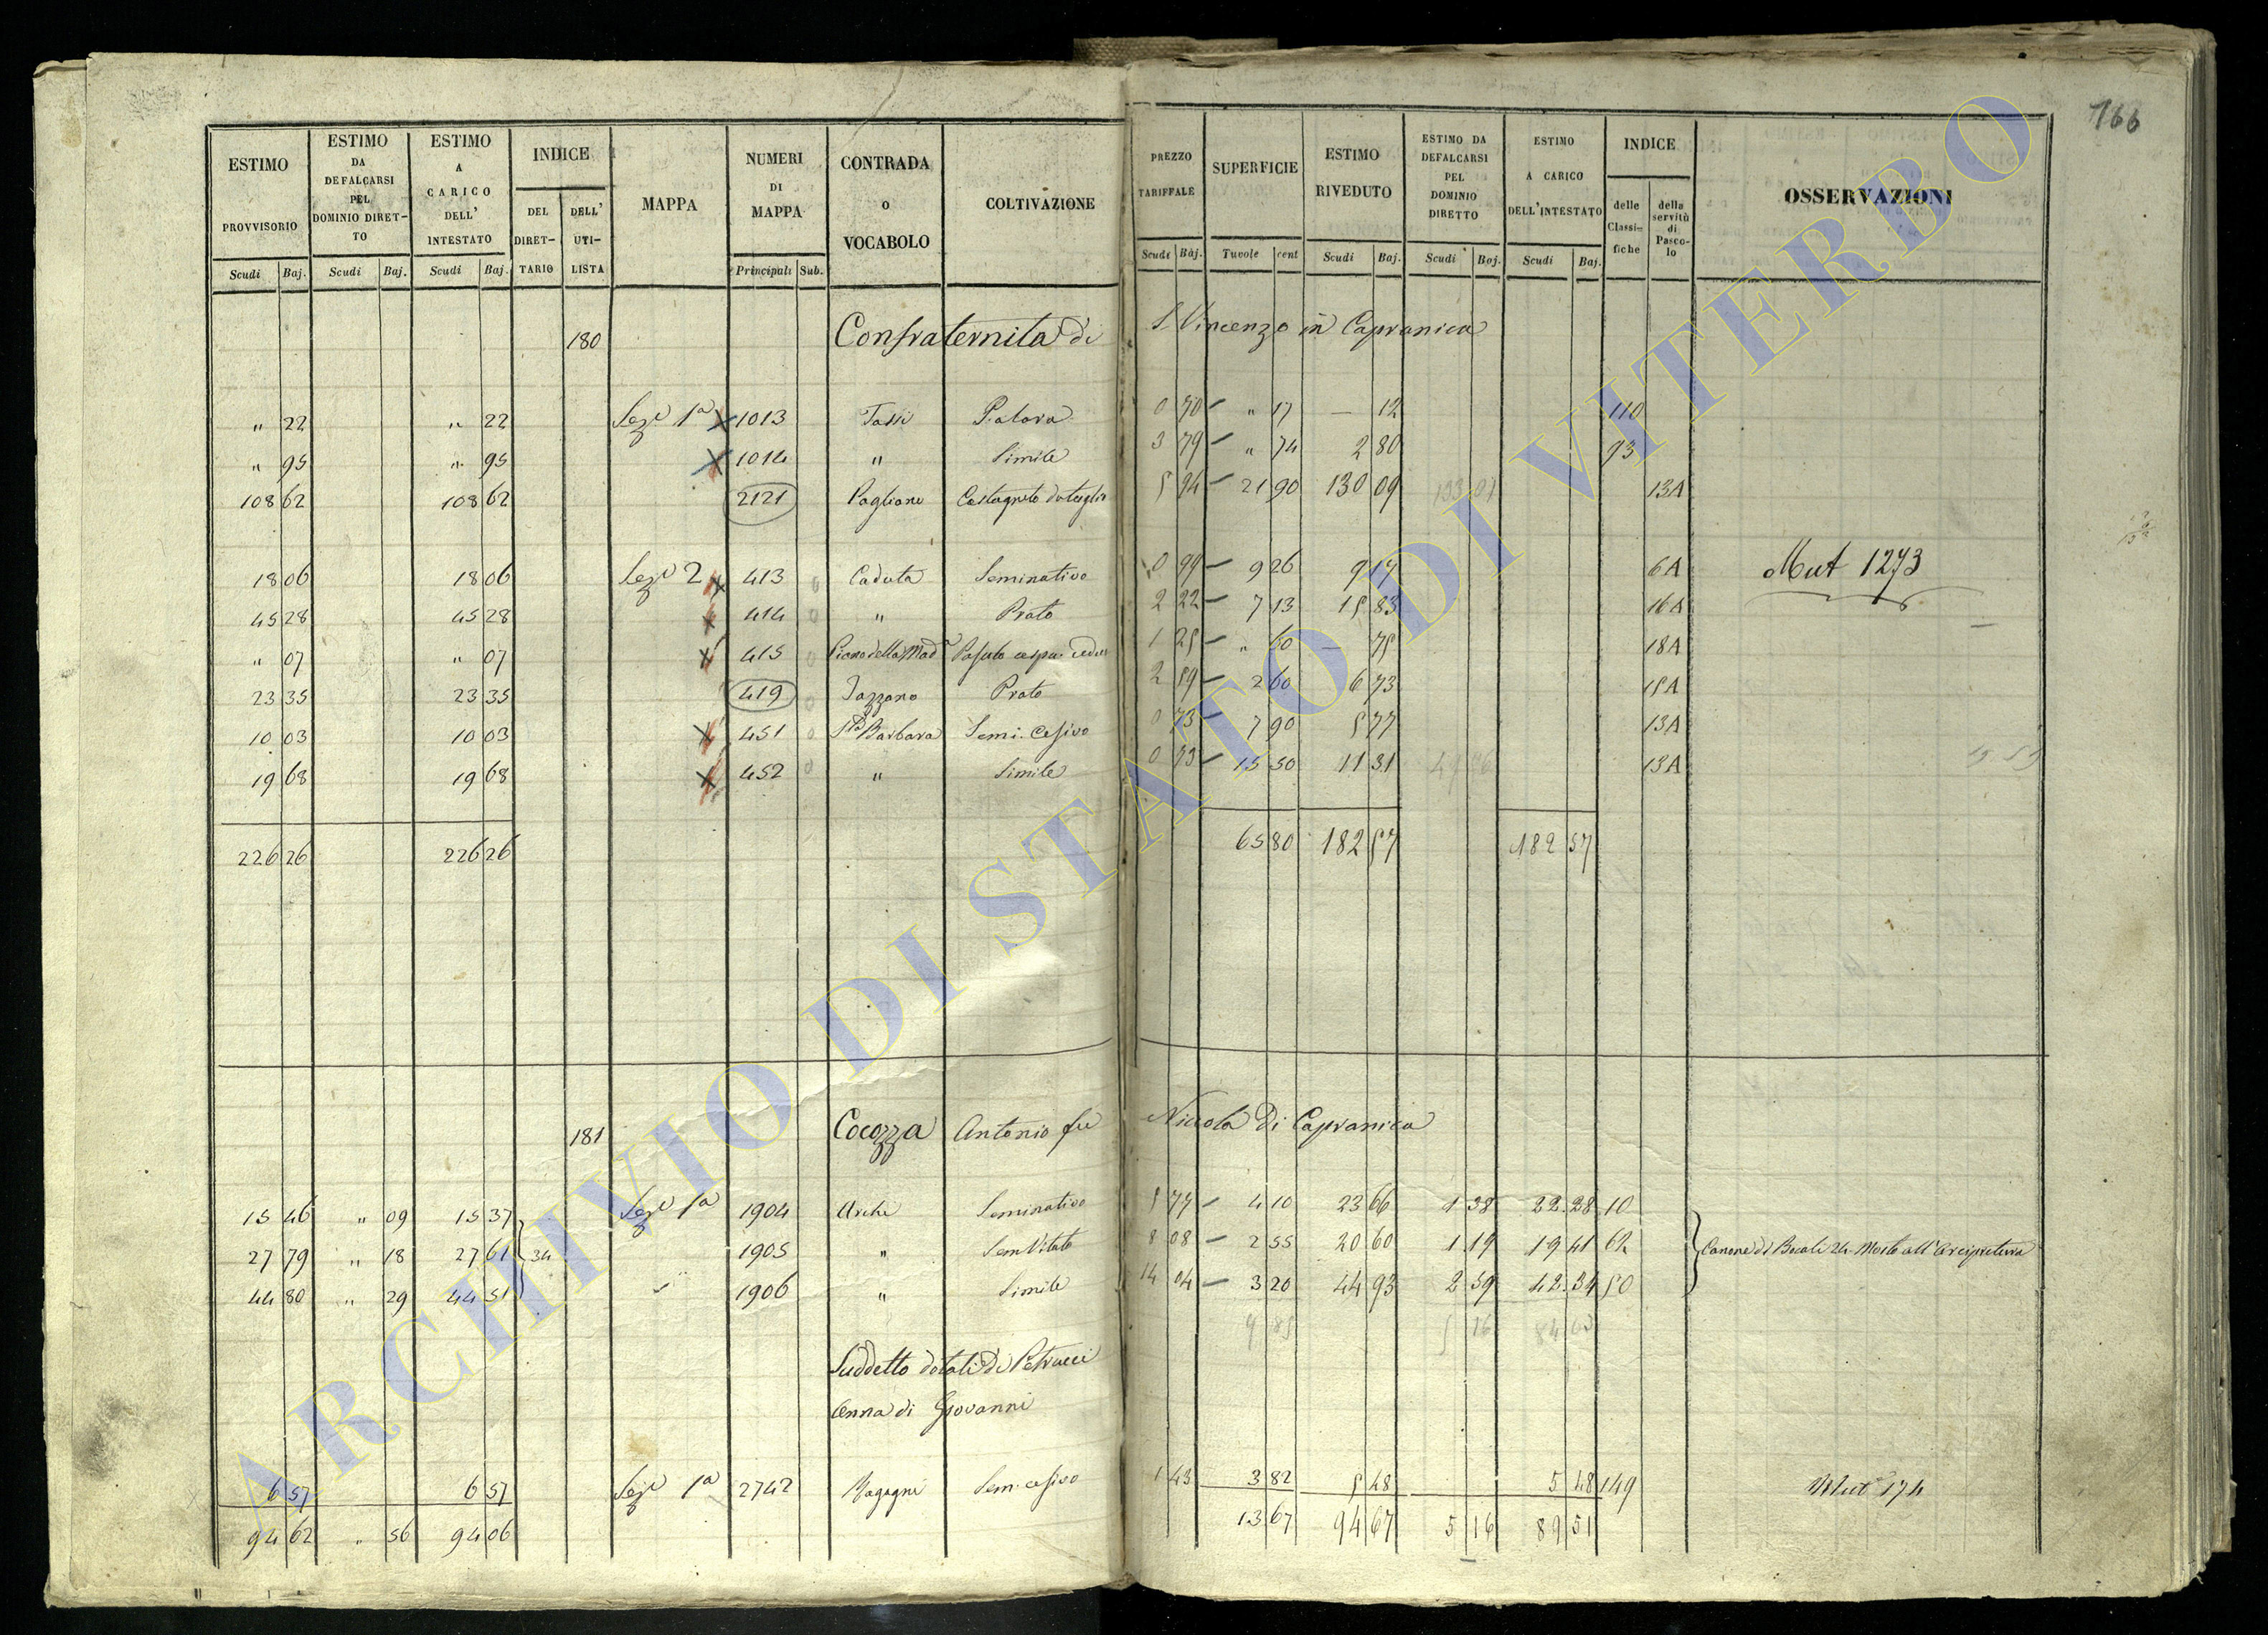 166
ESTIMO PROVVISORIO
ESTIMO DA DEFALCARSI PEL DOMINIO DIRETTO
ESTIMO A CARICO DELL' INTESTATO
INDICE
DEL DIRETTARIO
DELL' UTILISTA
MAPPA
NUMERI DI MAPPA
CONTRADA O VOCABOLO
COLTIVAZIONE
PREZZO TARIFFALE
SUPERFICIE
ESTIMO RIVEDUTO
ESTIMO DA DEFALCARSI PEL DOMINIO DIRETTO
ESTIMO A CARICO DELL'INTESTATO
INDICE
delle Classifiche
della servitù di Pascolo
OSSERVAZIONI
Scudi Baj. Scudi Baj. Scudi Baj. Principali Sub. Scudi Baj. Tavole cent Scudi Baj. Scudi Baj. Scudi Baj.
180 Confraternita di S. Vincenzo in Capranica
" 22 " 22 Sez.e 1a 1013 Tassi 0 70 " 17 — 12 110
" 95 " 95 1014 " Simile 3 79 " 74 2 80 93
108 62 108 62 2121 Paglione Castagneto 5 94 21 90 130 09 13A
18 06 18 06 Sez.e 2 413 Caduta Seminativo 0 99 9 26 9 17 6A Mut 1273
45 28 45 28 414 " Prato 2 22 7 13 15 83 16A
" 07 " 07 415 Piano della Mad.a Pascolo 1 25 " 60 — 75 18A
23 35 23 35 419 Jazzano Prato 2 59 2 60 6 73 15A
10 03 10 03 451 S.ta Barbara Semi. Cesivo 0 73 7 90 5 77 13A
19 68 19 68 452 " Simile 0 73 15 50 11 31 13A
226 26 226 26 65 80 182 57 182 57
181 Cocozza Antonio fu Niccola Di Capranica
15 46 " 09 15 37 Sez.e 1a 1904 Arche Seminativo 5 77 4 10 23 66 1 38 22 28 10
27 79 " 18 27 61 34 1905 " Sem Vitato 8 08 2 55 20 60 1 19 19 41 62 Canone di Bocali 24 Mosto all'Arcipretura
44 80 " 29 44 51 1906 " Simile 14 04 3 20 44 93 2 59 42 34 50
9 85 5 16 84 03
Suddetto dotali Di Petrucci
Anna di Giovanni
6 57 6 57 Sez.e 1a 2742 Sem. cesivo 1 43 3 82 5 48 5 48 149 Mut 174
94 62 " 56 94 06 13 67 94 67 5 16 89 51
ARCHIVIO DI STATO DI VITERBO